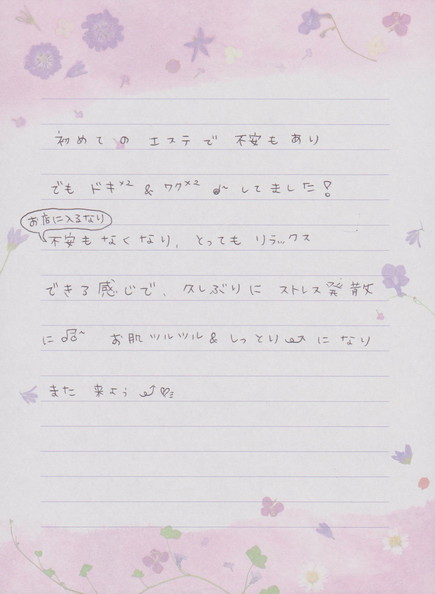 初めての エステで 不安もあり
でも ドキ×2 & ワク×2 ♪してました!
お店に入るなり
不安もなくなり、とっても リラックス
できる感じで、久しぶりに ストレス発散
に♫ お肌ツルツル&しっとり⤴になり
また 来よう⤴♡